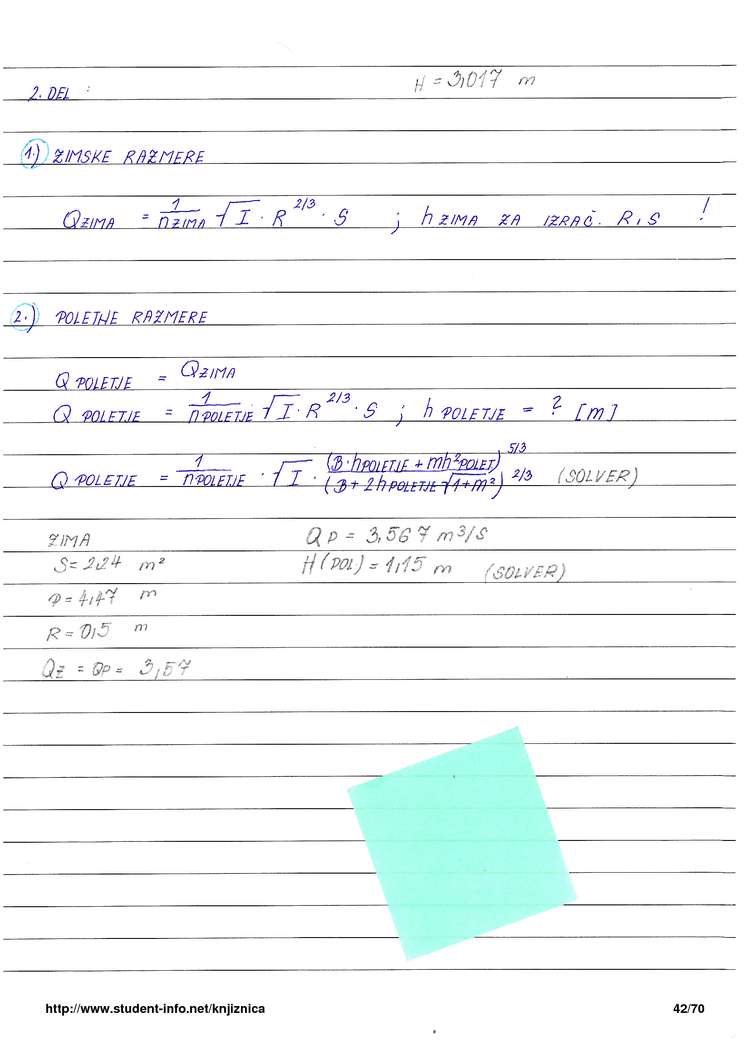 2. DEL :    H = 3,017 m
1.) ZIMSKE RAZMERE
QZIMA = 1/nZIMA √I · R^2/3 · S ; h ZIMA ZA IZRAČ. R i S !
2.) POLETNE RAZMERE
Q POLETJE = QZIMA
Q POLETJE = 1/nPOLETJE √I · R^2/3 · S ; h POLETJE = ? [m]
Q POLETJE = 1/nPOLETJE · √I · (B·hPOLETJE + mh²POLET)^5/3 / (B + 2hPOLETJE √1+m²)^2/3 (SOLVER)
ZIMA    Qp = 3,567 m3/s
S = 2,24 m²    H(POL) = 1,15 m (SOLVER)
P = 4,47 m
R = 0,5 m
Qz = Qp = 3,57
http://www.student-info.net/knjiznica    42/70